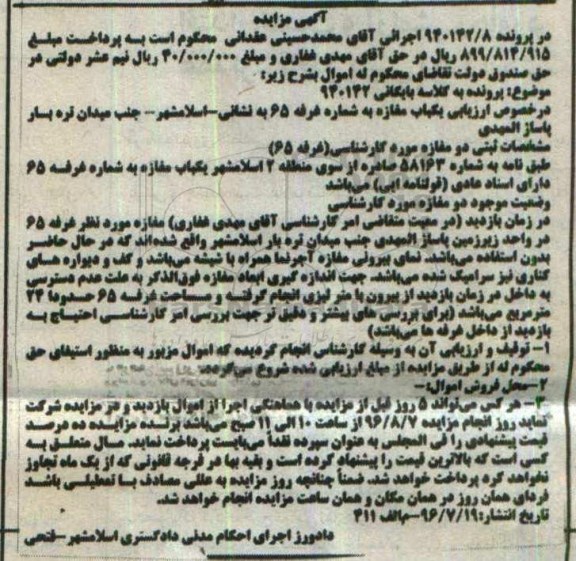 آگهی مزایده
در پرونده ۹۴۰۱۴۲/۸ اجرائی آقای محمدحسینی عقدائی محکوم است به پرداخت مبلغ
۸۹۹/۸۱۴/۹۱۵ ریال در حق آقای مهدی غفاری و مبلغ ۴۰/۰۰۰/۰۰۰ ریال نیم عشر دولتی در
حق صندوق دولت تقاضای محکوم له اموال بشرح زیر:
موضوع: پرونده به کلاسه بایگانی ۹۴۰۱۴۲
درخصوص ارزیابی یکباب مغازه به شماره غرفه ۶۵ به نشانی-اسلامشهر- جنب میدان تره بار
پاساژ المهدی
مشخصات ثبتی دو مغازه مورد کارشناسی(غرفه ۶۵)
طبق نامه به شماره ۵۸۱۶۳ صادره از سوی منطقه ۲ اسلامشهر یکباب مغازه به شماره غرفه ۶۵
دارای اسناد عادی (قولنامه ایی) می‌باشد
وضعیت موجود دو مغازه مورد کارشناسی
در زمان بازدید (در معیت متقاضی امر کارشناسی آقای مهدی غفاری) مغازه مورد نظر غرفه ۶۵
در واحد زیرزمین پاساژ المهدی جنب میدان تره بار اسلامشهر واقع شده‌اند که در حال حاضر
بدون استفاده می‌باشد. نمای بیرونی مغازه آجرنما همراه با شیشه می‌باشد و کف و دیواره های
کناری نیز سرامیک شده می‌باشد. جهت اندازه گیری ابعاد مغازه فوق‌الذکر به علت عدم دسترسی
به داخل در زمان بازدید از بیرون با متر لیزی انجام گرفته و مساحت غرفه ۶۵ حدودا ۲۴
مترمربع می‌باشد (برای بررسی های بیشتر و دقیق تر جهت بررسی امر کارشناسی احتیاج به
بازدید از داخل غرفه ها می‌باشد)
۱- توقیف و ارزیابی آن به وسیله کارشناسی انجام گردیده که اموال مزبور به منظور استیفای حق
محکوم له از طریق مزایده از مبلغ ارزیابی شده شروع می‌گردد.
۲-محل فروش اموال:-
۳- هر کس می‌تواند ۵ روز قبل از مزایده با هماهنگی اجرا از اموال بازدید و در مزایده شرکت
نماید روز انجام مزایده ۹۶/۸/۷ از ساعت ۱۰ الی ۱۱ صبح می‌باشد برنده مزایده ده درصد
قیمت پیشنهادی را فی المجلس به عنوان سپرده نقداً می‌بایست پرداخت نماید. مال متعلق به
کسی است که بالاترین قیمت را پیشنهاد کرده است و بقیه بها در فرجه قانونی که از یک ماه تجاوز
نخواهد کرد پرداخت خواهد شد. ضمناً چنانچه روز مزایده به عللی مصادف با تعطیلی باشد
فردای همان روز در همان مکان و همان ساعت مزایده انجام خواهد شد.
تاریخ انتشار:۹۶/۷/۱۹-م‌الف ۴۱۱
دادورز اجرای احکام مدنی دادگستری اسلامشهر -فتحی